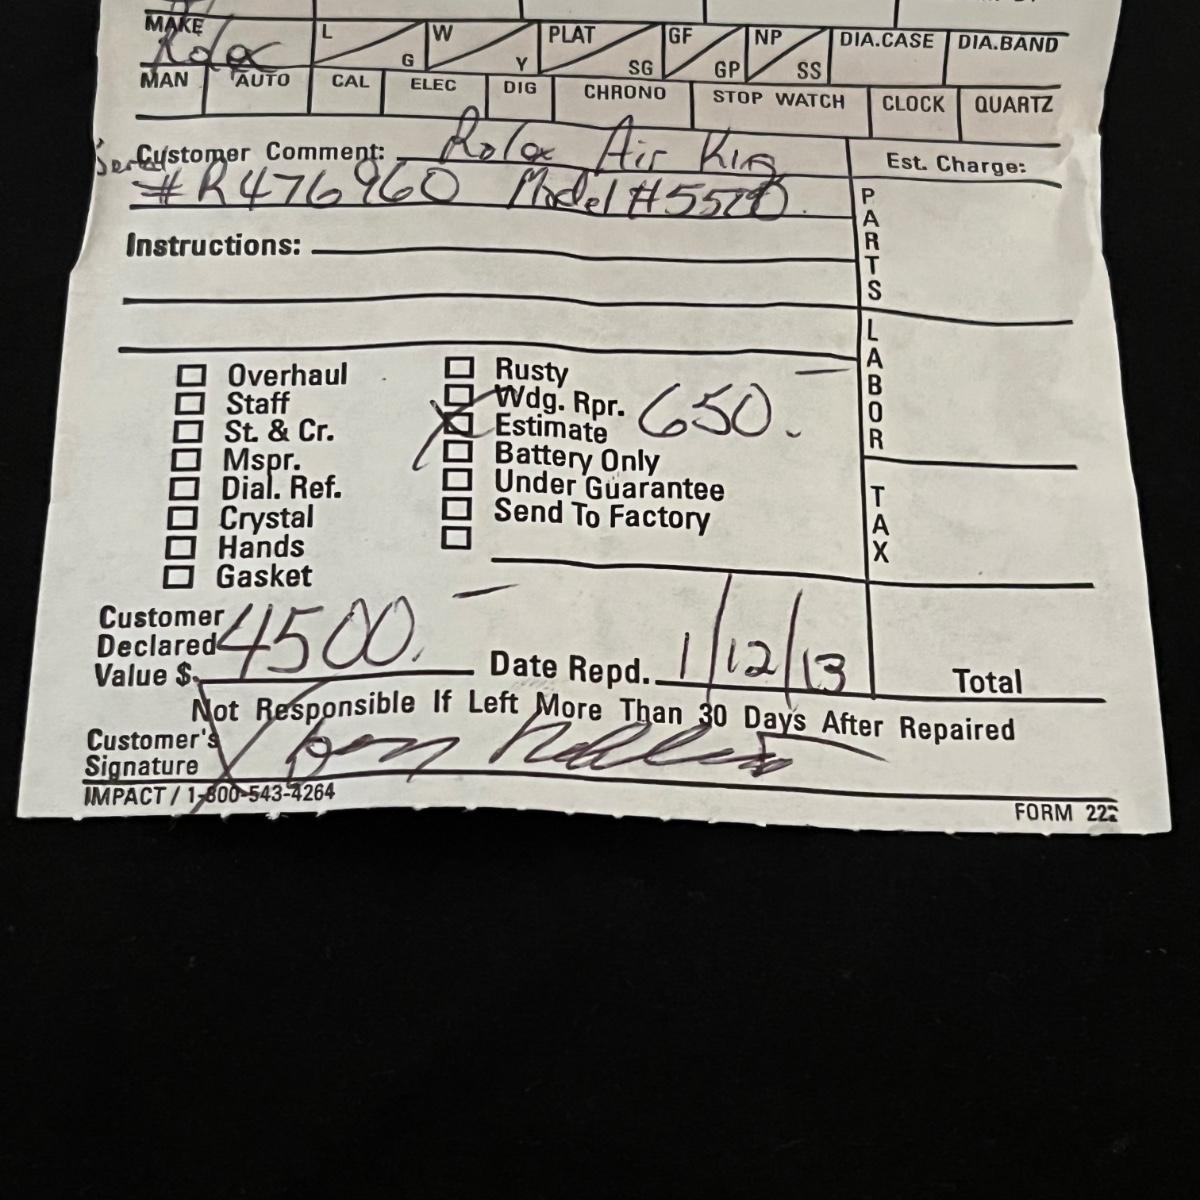 MAKE
Rolex
L G W Y PLAT SG GF GP NP SS DIA.CASE DIA.BAND
MAN AUTO CAL ELEC DIG CHRONO STOP WATCH CLOCK QUARTZ
Customer Comment: Rolex Air King
Est. Charge:
Serial
#R476960 Model #5520
PARTS
Instructions:
LABOR
Overhaul
Staff
St. & Cr.
Mspr.
Dial. Ref.
Crystal
Hands
Gasket
Rusty
Wdg. Rpr.
Estimate 650.
Battery Only
Under Guarantee
Send To Factory
TAX
Customer
Declared
Value $. 4500.
Date Repd. 1/12/13
Total
Not Responsible If Left More Than 30 Days After Repaired
Customer's
Signature X
IMPACT / 1-800-543-4264
FORM 222